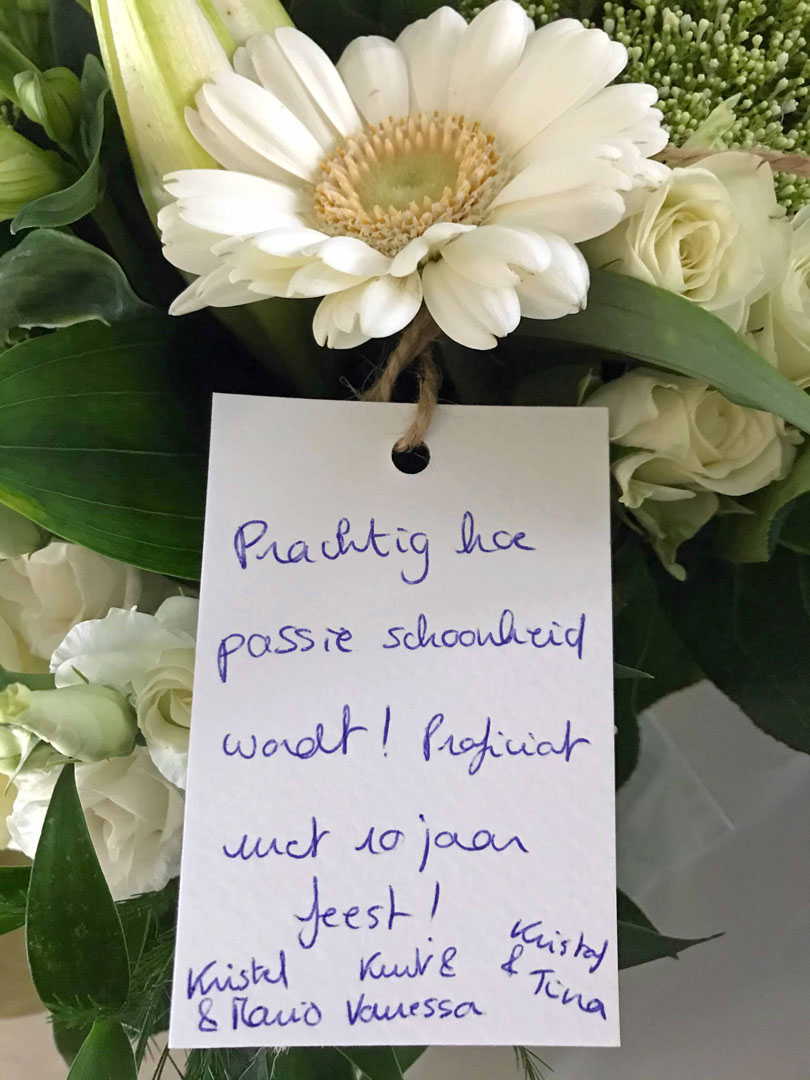 Prachtig hoe
passie schoonheid
wordt! Proficiat
met 10 jaar
feest!
Kristel Kurt & Kristof
& Mario Vanessa & Tina